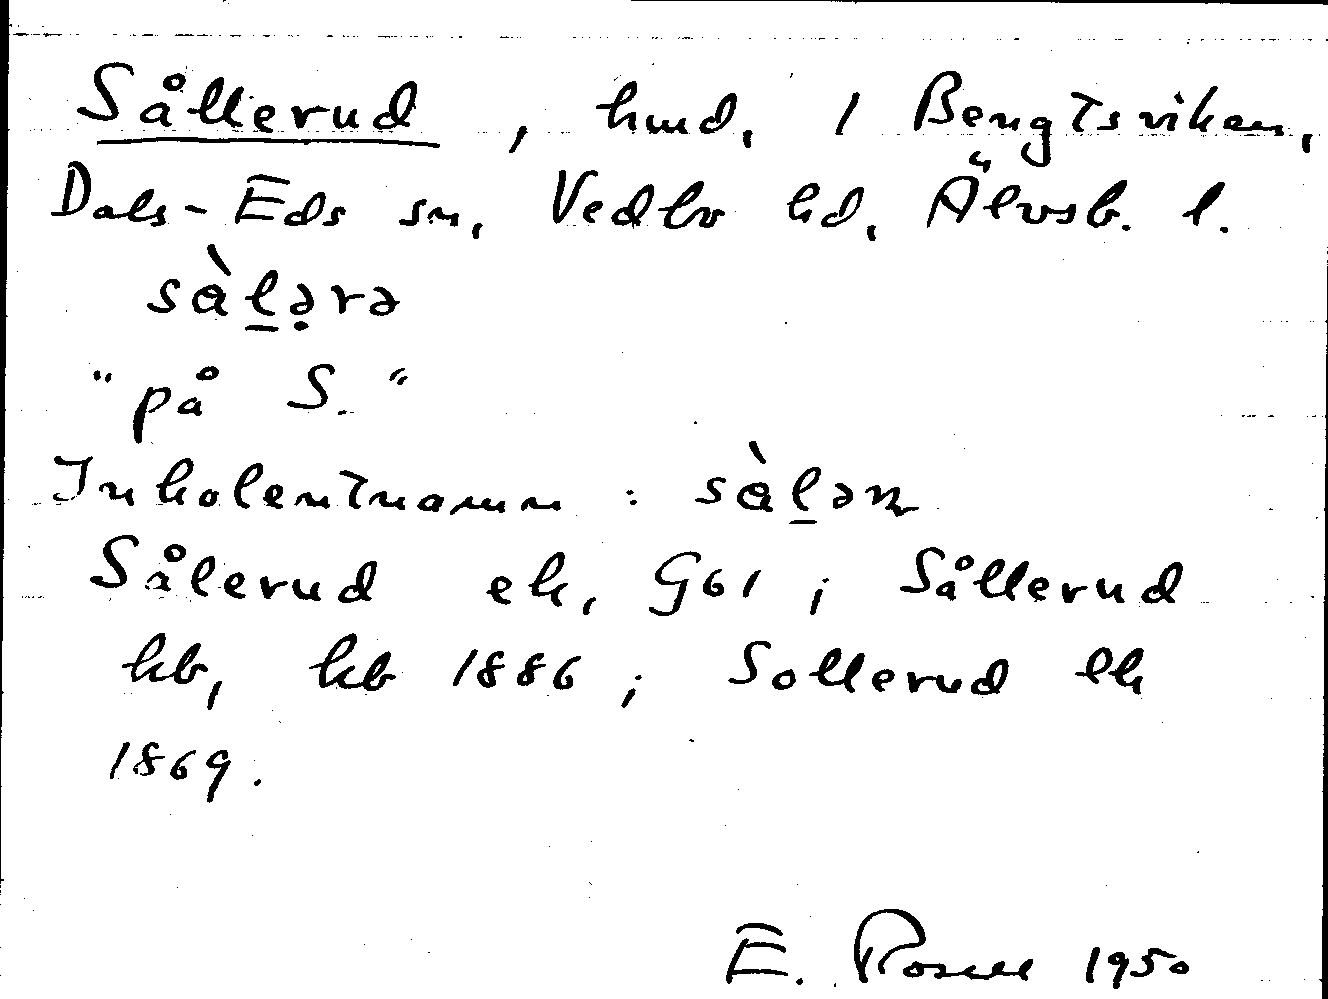 Sållerud, hmd, 1 Bengtsviken,
Dals-Eds sn, Vedbo hd, Älvsb. l.
sàl̠ə̣rə
"på S."
Inkolentnamn: sàl̠ən
Sålerud ek, G61; Sållerud
kb, kb 1886; Sollerud ek
1869.
E. 1950